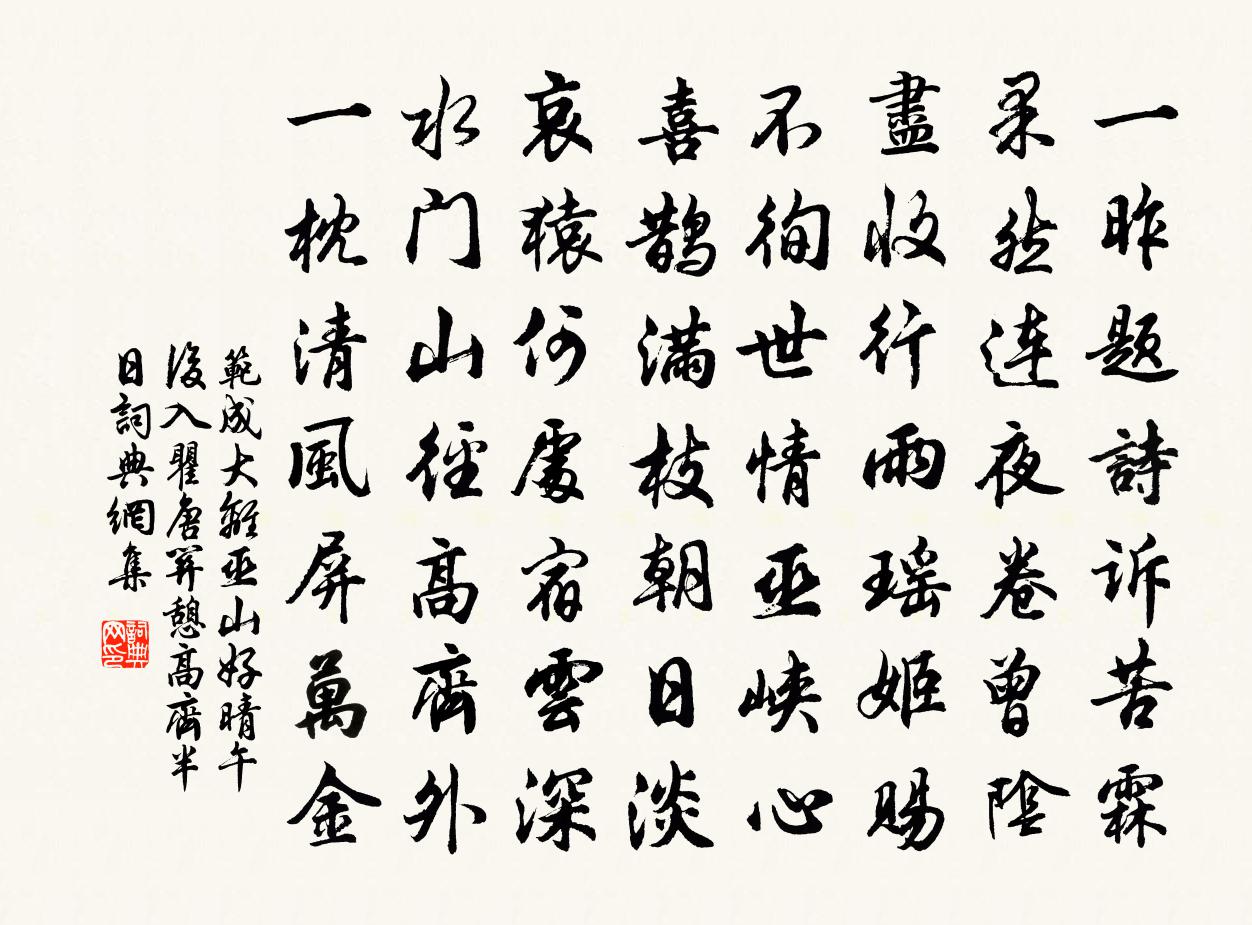 一昨題詩訴苦霖
果然連夜卷曾陰
盡收行雨瑤姬賜
不徇世情巫峽心
喜鵲滿枝朝日淡
哀猿何處宿雲深
水門山徑高齊外
一枕清風屏萬金
範成大離巫山好晴午
後入瞿唐關憩高齊半
日詞典網集
詞典网印